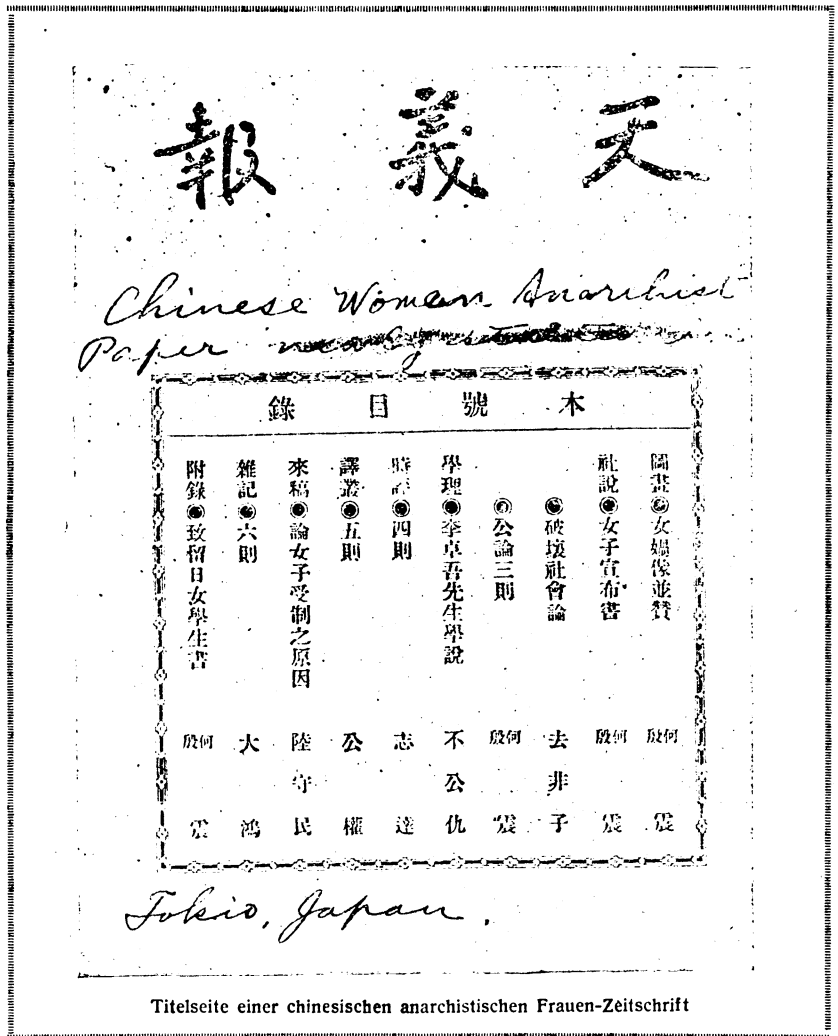 天義報
Chinese Woman Anarchist
Paper
本號目錄
圖畫◉女媧像並贊 何殷震
社說◉女子宣布書 何殷震
◉破壞社會論 去非子
◉公論三則 何殷震
學理◉李卓吾先生學說 不公仇
時評◉四則 志達
譯叢◉五則 公權
來稿◉論女子受制之原因 陸守民
雜記◉六則 大鴻
附錄◉致留日女學生書 何殷震
Tokio, Japan.
Titelseite einer chinesischen anarchistischen Frauen-Zeitschrift